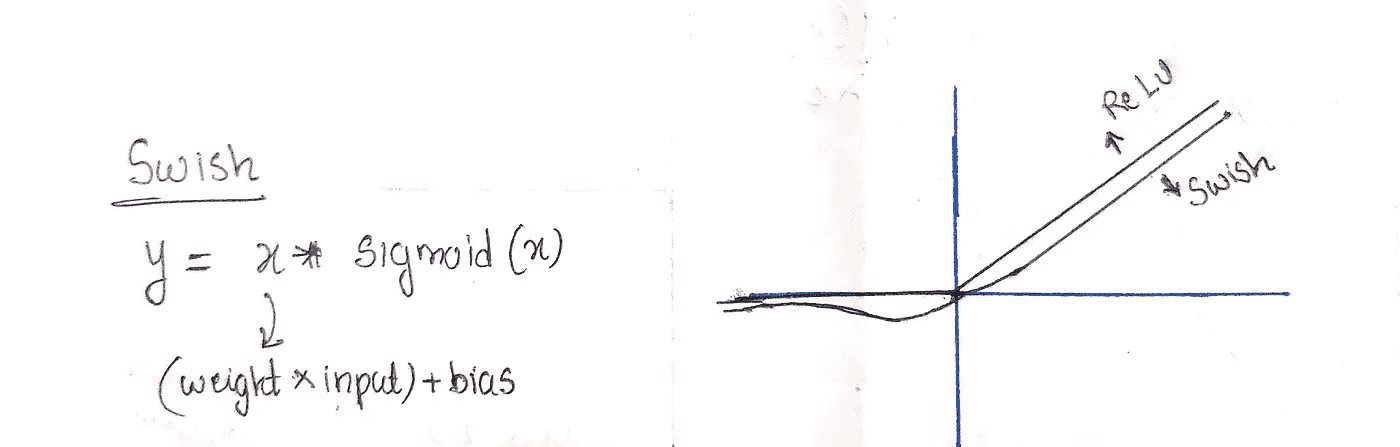 Swish
y = x * sigmoid (x)
(weight x input) + bias
ReLU
Swish